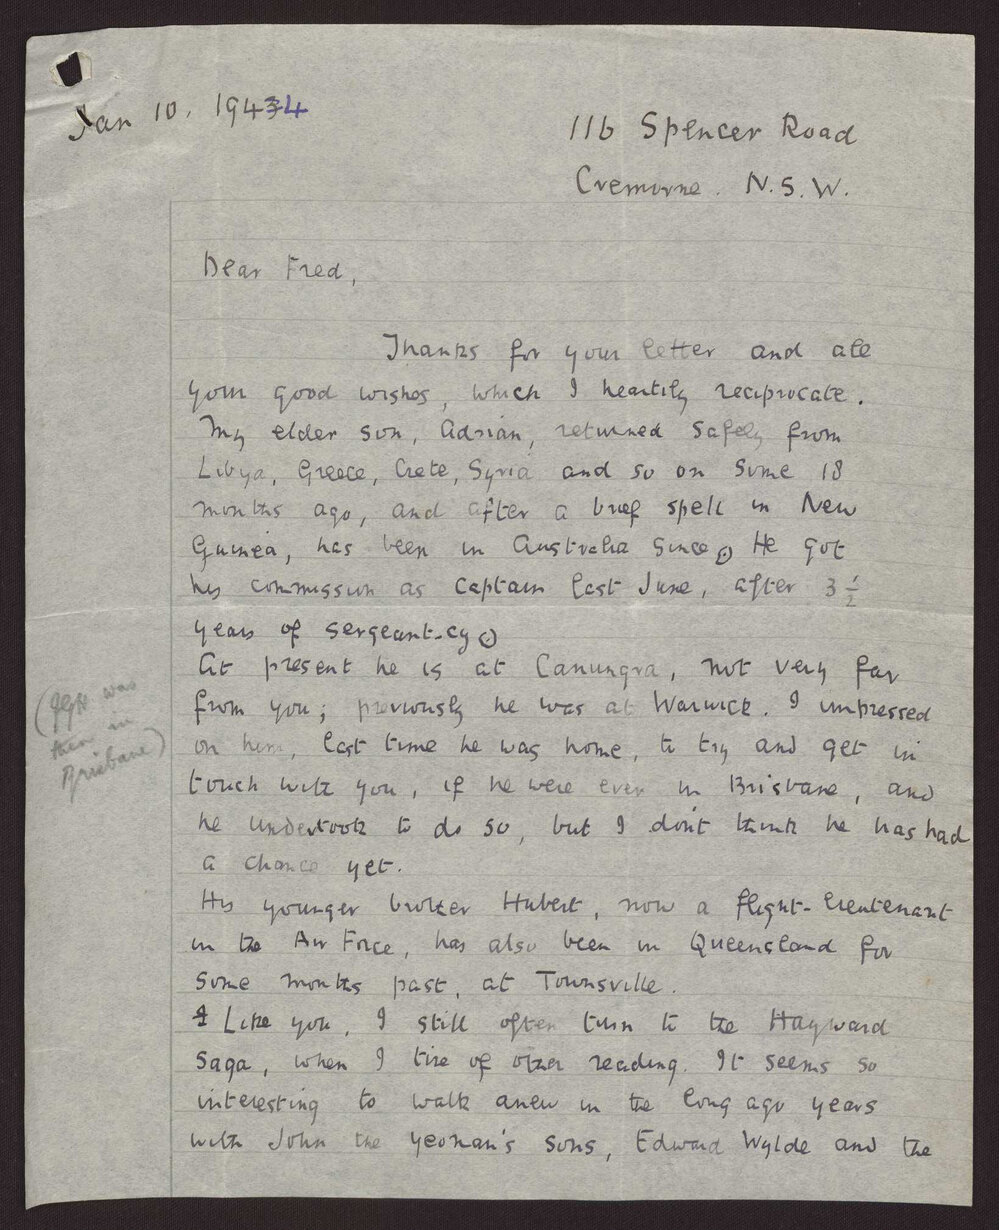 Jan 10. 1944
116 Spencer Road
Cremorne. N.S.W.
Dear Fred,
Thanks for your letter and all
your good wishes, which I heartily reciprocate.
My elder son, Adrian, returned safely from
Libya, Greece, Crete, Syria and so on some 18
months ago, and after a brief spell in New
Guinea, has been in Australia since. He got
his commission as captain last June, after 3½
years of sergeant-cy.
At present he is at Canungra, not very far
from you; previously he was at Warwick. I impressed
on him, last time he was home, to try and get in
touch with you, if he were ever in Brisbane, and
he undertook to do so, but I don't think he has had
a chance yet.
(was
then in
Brisbane)
His younger brother Hubert, now a flight-lieutenant
in the Air Force, has also been in Queensland for
some months past, at Townsville.
Like you, I still often turn to the Hayward
saga, when I tire of other reading. It seems so
interesting to walk anew in the long ago years
with John the yeoman's sons, Edward Wylde and the